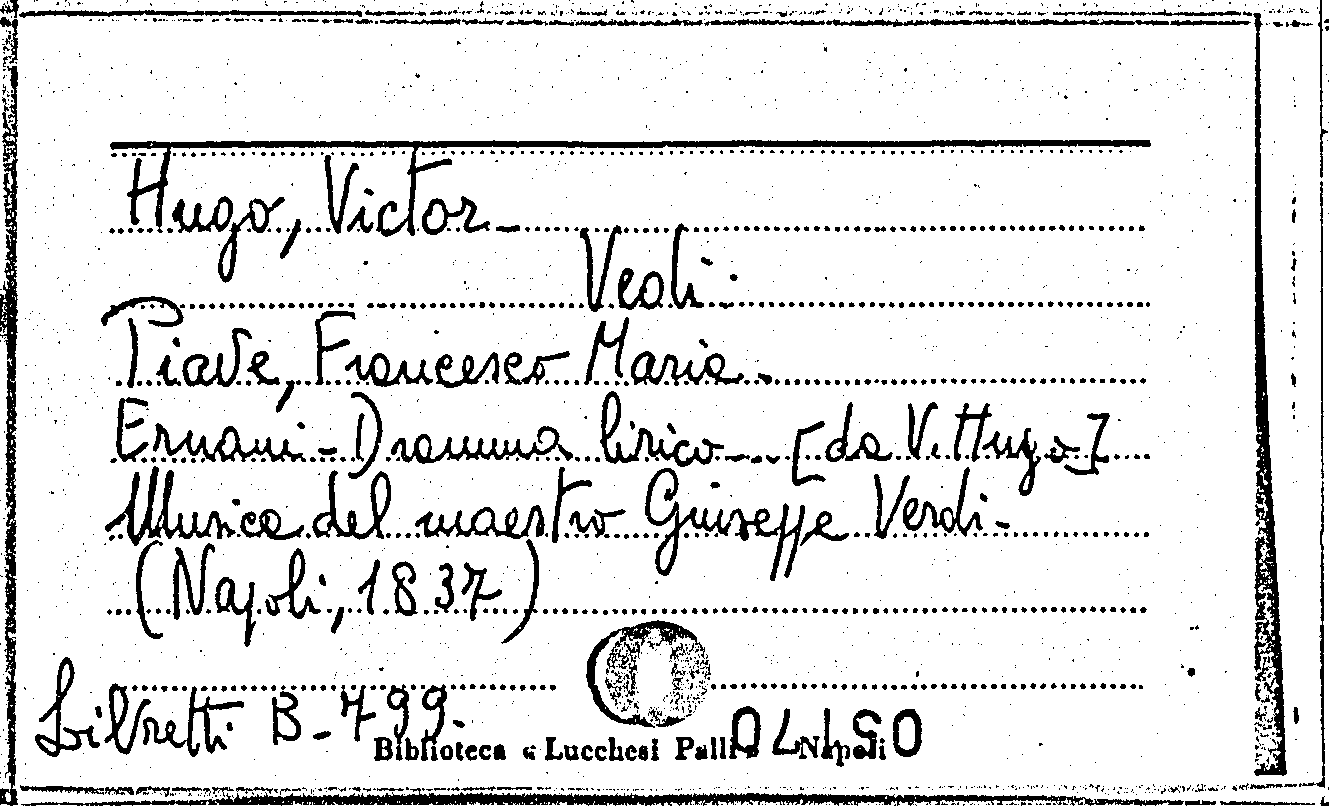 Hugo, Victor -
Vedi:
Piave, Francesco Maria -
Ernani - Dramma lirico -.. [da V. Hugo]
Musica del maestro Giuseppe Verdi -
(Napoli, 1837)
Libretti B-799.
Biblioteca « Lucchesi Palli » Napoli